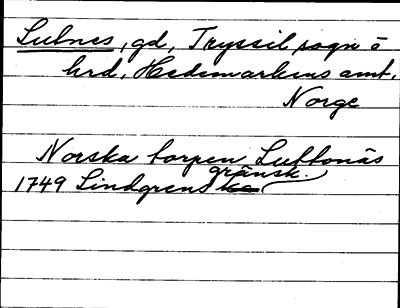 Lulnes, gd, Tryssil, sogn o
hrd, Hedemarkens amt,
Norge
Norska torpen Lutlonäs
gränsk.
1749 Lindgrens